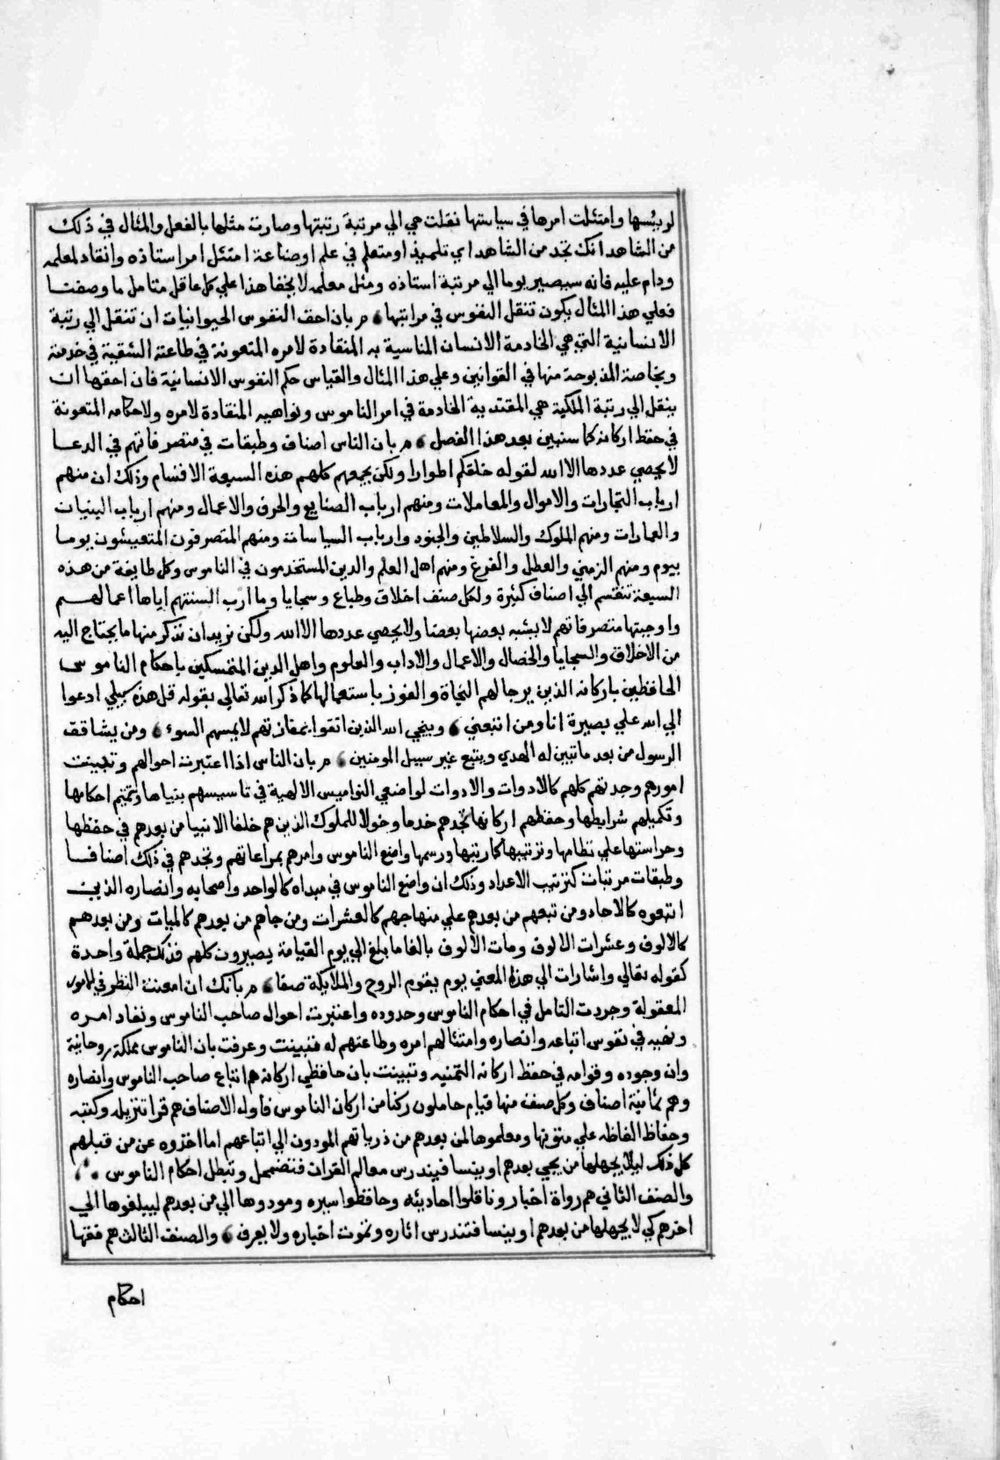 لرييسها وامتثلت امرها في سياستها نقلت هي الي مرتبة رتبتها وصارت مثلها بالفعل والمثال في ذلك
من الشاهد انك تجد من الشاهد اي تلميذ او متعلم في علم او صناعة امتثل امر استاذه وانقاد لمعلمه
ودام عليه فانه سيصير يوما الي مرتبة استاذه ومثل معلمه لا يخفا هذا علي كل عاقل متامل ما وصفنا
فعلي هذا المثال يكون تنقل النفوس في مراتبها م بان احق النفوس الحيوانيات ان تنقل الي رتبة
الانسانية التي هي الخادمة الانسان المناسية به المنقادة لامره المتعوبة في طاعته الشقية في خدمته
وبخاصة المذبوحة منها في القوانين وعلي هذا المثال والقياس حكم النفوس الانسانية فان احقها ان
ينقل الي رتبة الملكية هي المقتدية الخادمة في امر الناموس ونواهيه المنقادة لامره ولاحكامه المتعوبة
في حفظ اركانه كما سنبين بعد هذا الفصل م بان الناس اصناف وطبقات في متصرفاتهم في الدعا
لا يحصي عددها الا الله لقوله خلقكم اطوارا ولكن يجمعهم كلهم هذه السبعة الاقسام وذلك ان منهم
ارباب التجارات والاموال والمعاملات ومنهم ارباب الصنايع والحرف والاعمال ومنهم ارباب البنيات
والعمارات ومنهم الملوك والسلاطين والجنود وارباب السياسات ومنهم المتصرفون المتعيشون يوما
بيوم ومنهم الزمني والعطل والفرغ ومنهم اهل العلم والدين المستخدمون في الناموس وكل طايفة من هذه
السبعة تنقسم الي اصناف كثيرة ولكل صنف اخلاق وطباع وسجايا وما ارب السنتهم اياها اعمالهم
واوجبتها متصرفاتهم لا يشبه بعضها بعضا ولا يحصي عددها الا الله ولكن نريد ان نذكر منها ما يحتاج اليه
من الاخلاق والسجايا والخصال والاعمال والاداب والعلوم واهل الدين المتمسكين باحكام الناموس
الحافظين باركانه الذين يرجا لهم النجاة والفوز باستعمالها كما ذكر الله تعالي بقوله قل هذه سبيلي ادعوا
الي الله علي بصيرة انا ومن اتبعني وينجي الله الذين اتقوا بمفازتهم لا يمسهم السوء ومن يشاقق
الرسول من بعد ما تبين له الهدي ويتبع غير سبيل المومنين م بان الناس اذا اعتبرت احوالهم وتبينت
امورهم وجدتهم كلهم كالادوات والادوات لواضعي النواميس الالهية في تاسيسهم بنياها وتتميم احكامها
وتكميلهم شرايطها وحفظهم اركانها تجدهم خدما وخولا للملوك الذين هم خلفا الانبيا من بعدهم في حفظها
وحراستها علي نظامها وترتيبها كما رتبها ورسمها واضع الناموس وامرهم بمراعاتهم وتجدهم في ذلك اصنافا
وطبقات مرتبات كترتيب الاعداد وذلك ان واضع الناموس في مبداه كالواحد واصحابه وانصاره الذين
اتبعوه كالاحاد ومن تبعهم من بعدهم علي منهاجهم كالعشرات ومن جاهم من بعدهم كالميات ومن بعدهم
كالالوف وعشرات الالوف ومات الالوف بالغا ما بلغ الي يوم القيامة يصيرون كلهم فذلك جملة واحدة
كقوله تعالي واشارات الي هذا المعني يوم يقوم الروح والملايكة صفا م بانك ان امعنت النظر في الامور
المعقولة وجردت التامل في احكام الناموس وحدوده واعتبرت احوال صاحب الناموس ونفاد امره
ونهيه في نفوس اتباعه وانصاره وامتثالهم امره وطاعتهم له فتبينت وعرفت بان الناموس مملكة روحانية
وان وجوده وقوامه في حفظ اركانه الثمنيه وتبينت بان حافظي اركانه هم اتباع صاحب الناموس وانصاره
وهم ثمانية اصناف وكل صنف منها قيام حاملون ركنا من اركان الناموس فاوله الاصناف هم قرا تنزيله وكتبه
وحفاظ الفاظه علي متونها ومعلموها لمن بعدهم من ذرياتهم المودون الي اتباعهم اما اخذوه عن من قبلهم
كل ذلك ليلا يجهلها من يجي بعدهم او ينسا فيندرس معالم القران فتضمحل وتبطل احكام الناموس
والصنف الثاني هم رواة اخبار وناقلوا احاديثه وحافظوا سيره ومودوها الي من بعدهم ليبلغوها الي
اخرهم كي لا يجهلها من بعدهم او ينسا فتندرس اثاره وتموت اخباره ولا يعرف والصنف الثالث هم فقها
احكام